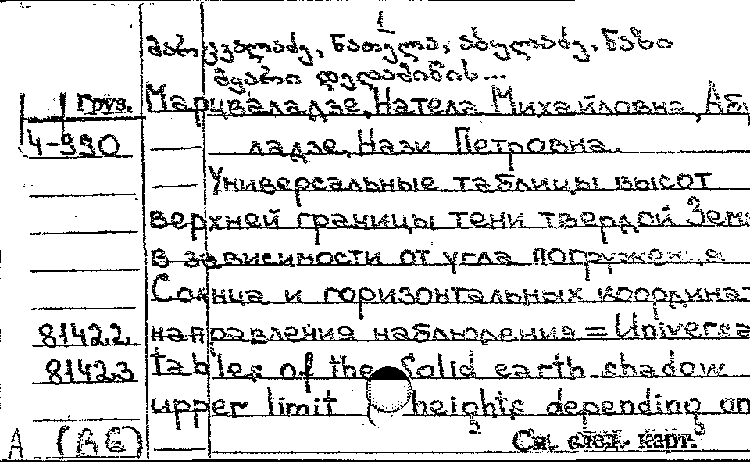 1
მარცვალაძე, ნათელა, აბულაძე, ნაზი
მყარი დედამიწის...
Груз. Марцваладзе, Натела Михайловна, Абу
4-990 ладзе, Нази Петровна.
Универсальные таблицы высот
верхней границы тени твердой Зем
в зависимости от угла погружения
Солнца и горизонтальных координат
8142.2 направления наблюдения = Universa
8142.3 tables of the Solid earth shadow
upper limit heights depending on
А См. след. карт.